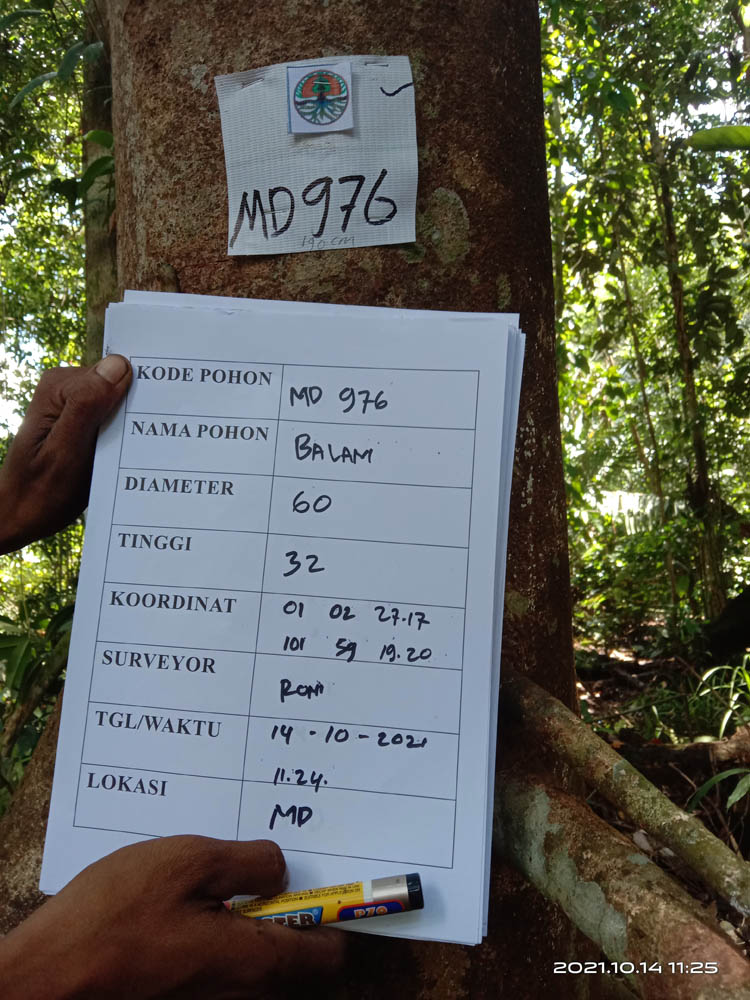 MD976
190 cm
KODE POHON MD 976
NAMA POHON BALAM
DIAMETER 60
TINGGI 32
KOORDINAT 01 02 27.17
101 59 19.20
SURVEYOR RONI
TGL/WAKTU 14-10-2021
11.24.
LOKASI MD
P70
2021.10.14 11:25